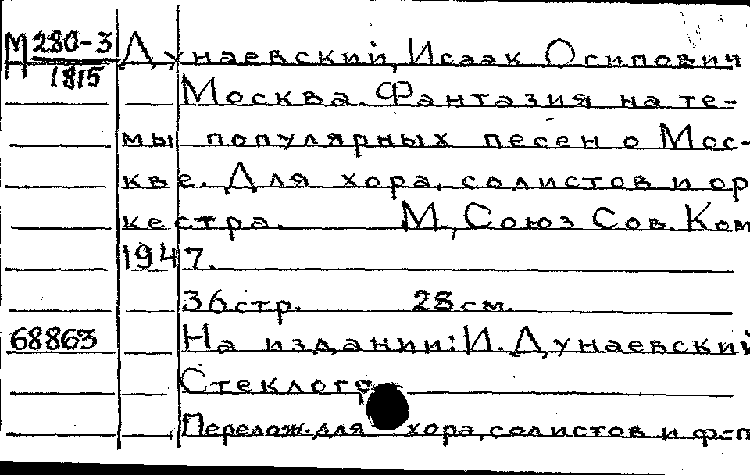 М 280-3 Дунаевский, Исаак Осипович
1815
Москва. Фантазия на те-
мы популярных песен о Мос-
кве. Для хора, солистов и ор
кестра. М, Союз Сов. Ком
1947.
36 стр. 28 см.
68863 На издании: И. Дунаевский
Стеклогр.
Перелож. для хора, солистов и ф-п